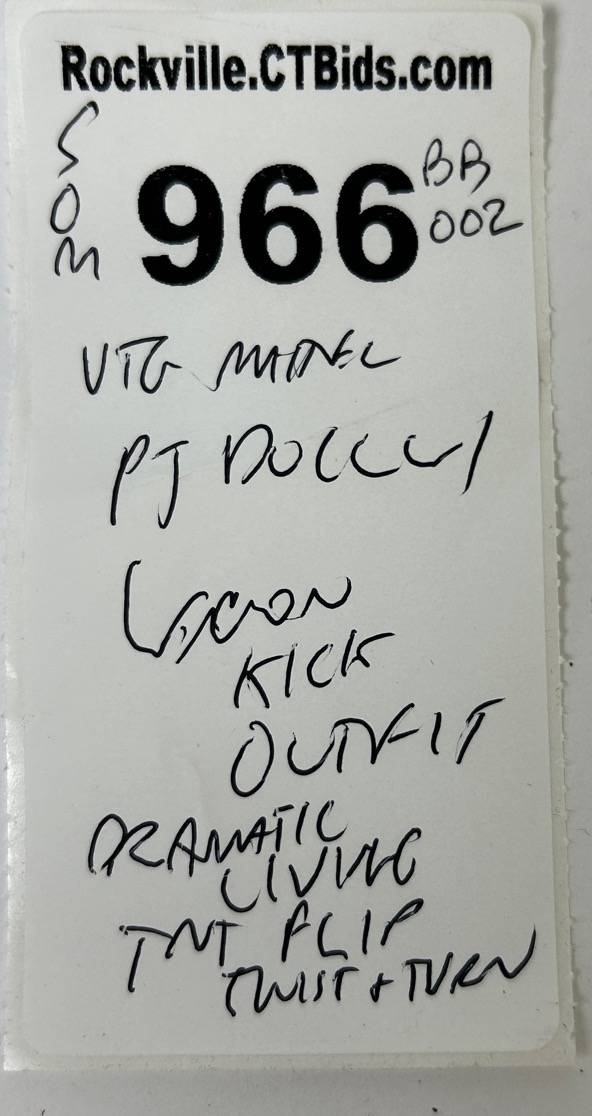 Rockville.CTBids.com
SOM
966
BB
002
VTG MATTEL
PJ DOLL W/
LEMON
KICK
OUTFIT
DRAMATIC
LIVING
TNT FLIP
TWIST + TURN